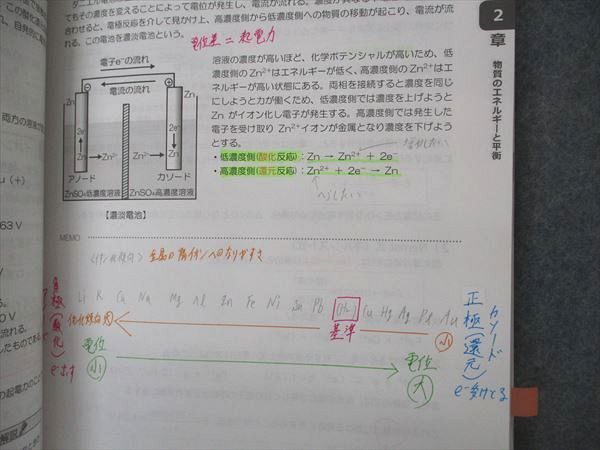 てもその濃度を変えることによって電位が発生し、電流が流れる。
合わせると、電極反応を介して見かけ上、高濃度側から低濃度側への物質の移動が起こり、電流が流
れる。この電池を濃淡電池という。
電位差＝起電力
2
章
物質のエネルギーと平衡
溶液の濃度が高いほど、化学ポテンシャルが高いため、低
濃度側のZn²⁺はエネルギーが低く、高濃度側のZn²⁺はエ
ネルギーが高い状態にある。両相を接続すると濃度を同じ
にしようと力が働くため、低濃度側では濃度を上げようと
Zn がイオン化し電子が発生する。高濃度側では発生した
電子を受け取り Zn²⁺イオンが金属となり濃度を下げよう
とする。
・低濃度側(酸化反応)：Zn → Zn²⁺ + 2e⁻
・高濃度側(還元反応)：Zn²⁺ + 2e⁻ → Zn
増やしたい
へらしたい
電子e⁻の流れ
電流の流れ
Zn
Zn
2e⁻
2e⁻
Zn
Zn²⁺
Zn²⁺
Zn
アノード
カソード
ZnSO₄低濃度溶液
ZnSO₄高濃度溶液
【濃淡電池】
MEMO
〈イオン化傾向〉 金属の陽イオンへのなりやすさ
Li K Ca Na Mg Al Zn Fe Ni Sn Pb (H₂) Cu Hg Ag Pt Au
基準
大
小
電位
小
電位
大
負極(酸化)
e⁻出す
正極(還元)
カソード
e⁻受けてる
両方の溶液が
63 V
流れる。
したものであ
の起電力のこと
解説